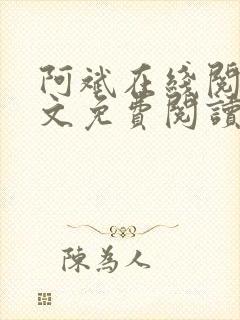 阿斌在綫閱
文免費閱讀
陳為人